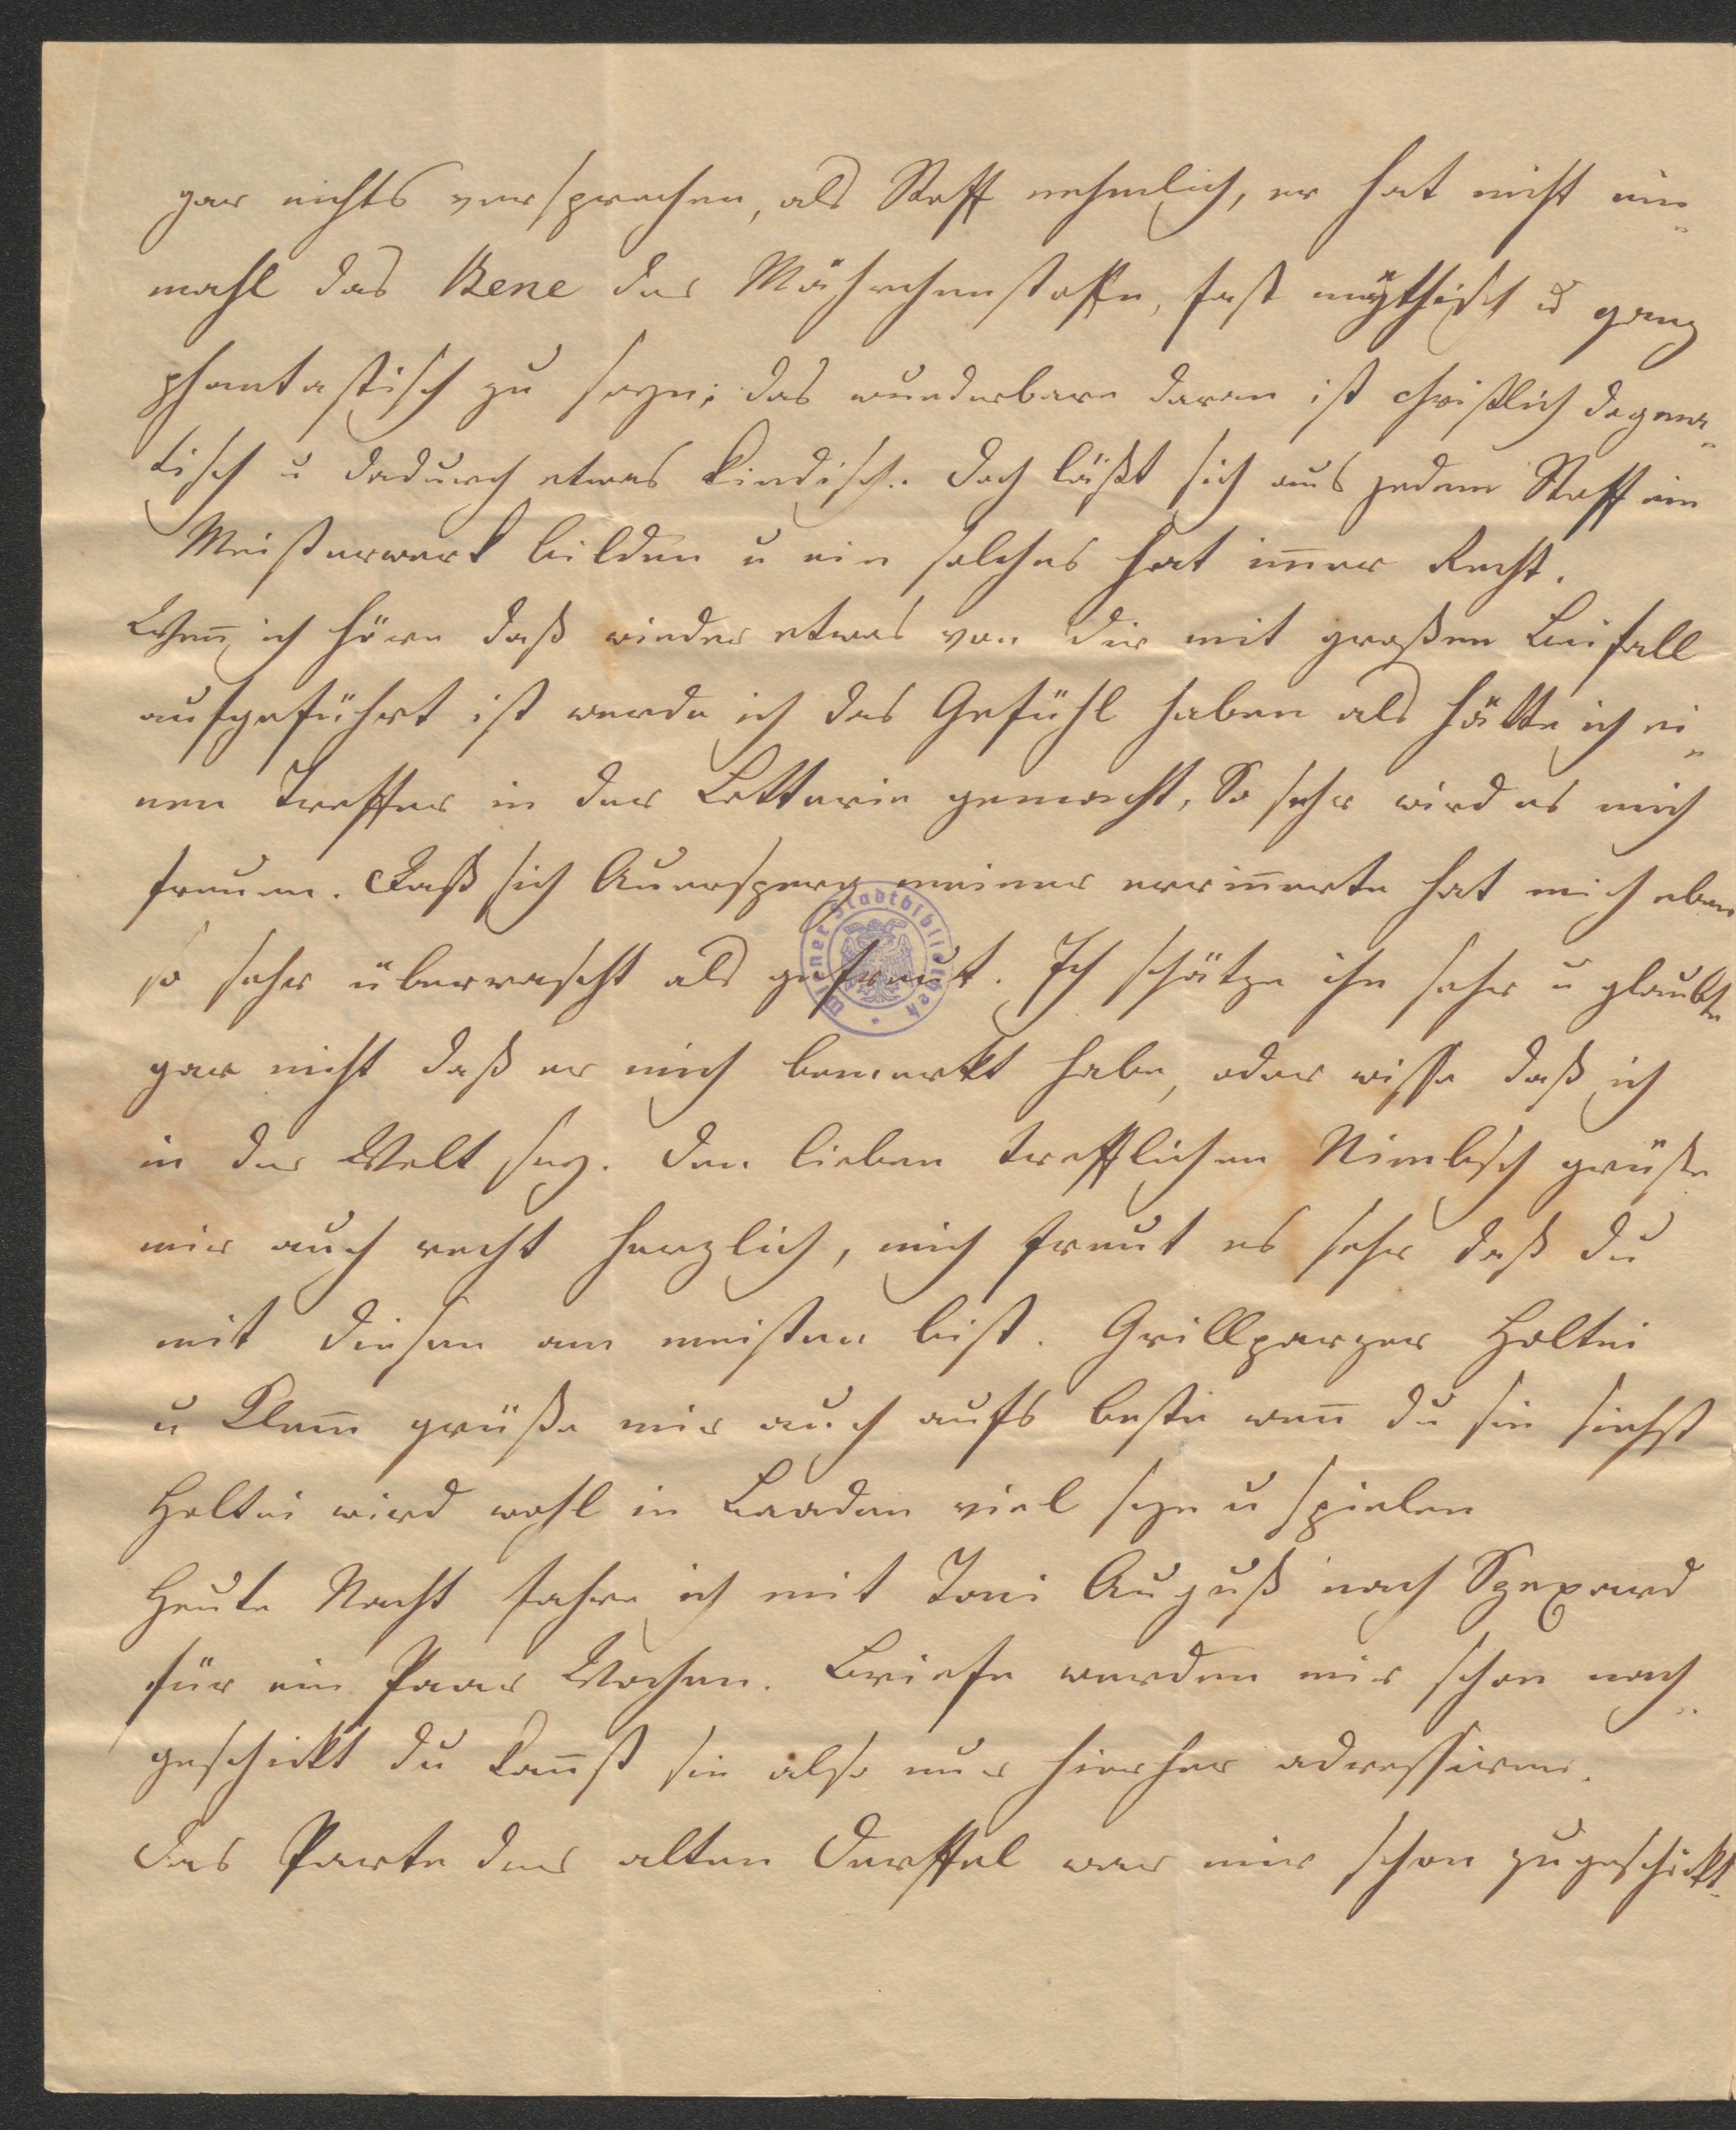 gar nichts versprochen, als Stoff nehmlich, er hat nicht ein-
mahl das Bene der Mährchenstoffe, fast mÿthisch u ganz
phantastisch zu seyn; das wunderbare daran ist christlich dogma-
tisch u dadurch etwas kindisch. Doch läßt sich aus jedem Stoff ein
Meisterwerk bilden u ein solches hat im̄er Recht.
Wen̄ ich höre daß wieder etwas von dir mit großen Beifall
aufgeführt ist werde ich das Gefühl haben als hätte ich ei-
nen Treffer in der Lotterie gemacht, So sehr wird es mich
freuen. Daß sich Auersperg meiner errin̄erte hat mich eben
so sehr überrascht als gefreut. Ich schätze ihn sehr u glaubte
gar nicht daß er mich bemerkt habe, oder wisse daß ich
in der Welt sey. Den lieben trefflichen Nimbsch grüße
mir auch recht herzlich, mich freut es sehr daß du
mit diesen am meisten bist. Grillparzer Holtei
u Clam̄ grüße mir auch aufs beste wen̄ du sie siehst
Holtei wird wohl in Baaden viel seyn u spielen
Heute Nacht fahre ich mit Toni August nach Szexard
für ein Paar Wochen. Briefe werden mir schon nach-
geschickt du kan̄st sie also nur hierher adressiren.
Das Parte des alten Derffel war mir schon zugeschickt
Wiener Stadtbibliothek